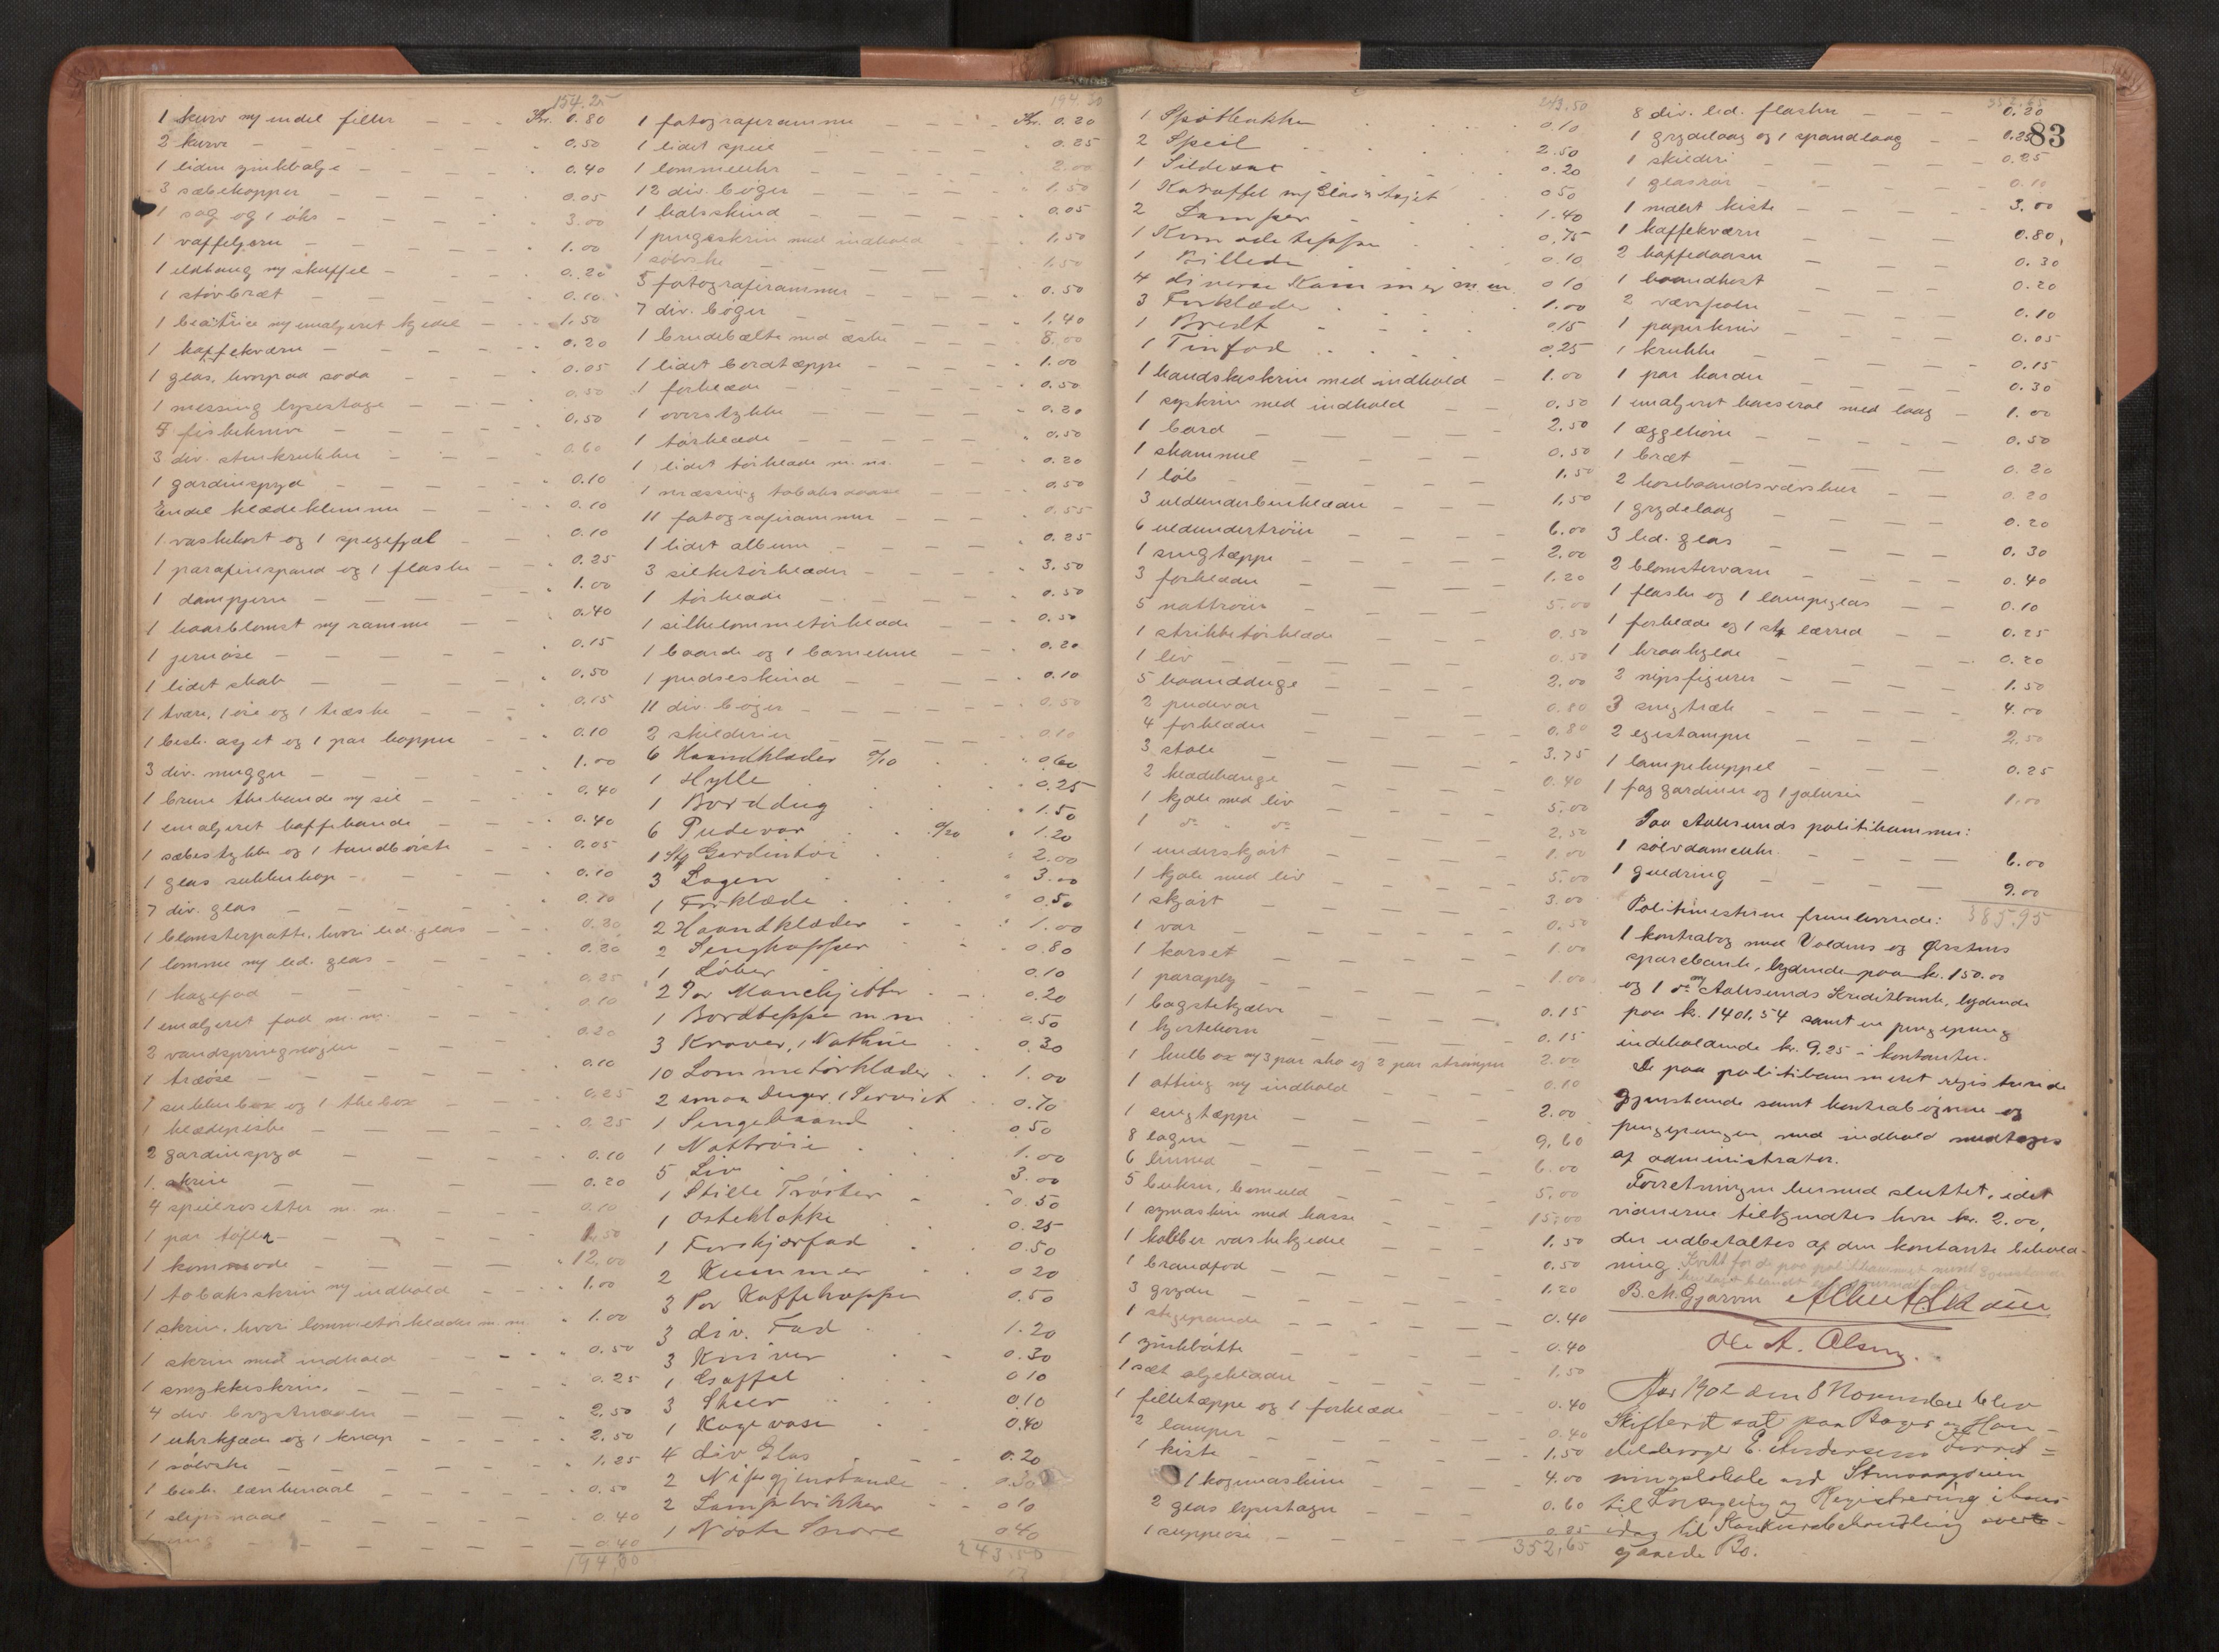 154.25
1 kurv m/ endel filler - - - Kr. 0.80
2 kurve - - - - " 0.50
1 liden zinkbalje - - - " 0.40
3 sæbekopper - - - - 0.05
1 sag og 1 øks - - - - 3.00
1 vaffeljern - - - - 1.00
1 ildtang m/ skuffel - - - 0.20
1 støvbræt - - - - 0.10
1 beatrice m/ emaljeret kjedel - - 1.50
1 kaffekværn - - - - 0.20
1 glas, hvorpaa soda - - - 0.05
1 messing lysestage - - - 0.50
4 fiskeknive - - - - 0.50
3 div. stenkrukker - - - 0.60
1 gardinspyd - - - - 0.10
Endel klædeklemmer - - - 0.10
1 vaskekost og 1 spegefjæl - - 0.10
1 parafinspand og 1 flaske - - 0.25
1 dampjern - - - - 1.00
1 haarblomst m/ ramme - - 0.40
1 jernøse - - - - 0.15
1 lidet skab - - - - 0.50
1 tvare, 1 øse og 1 træske - - 0.15
1 besk. asjet og 1 par kopper - - 0.10
3 div. mugger - - - - 1.00
1 brun thekande m/ sil - - 0.40
1 emaljeret kaffekande - - 0.40
1 sæbestykke og 1 tandbørste - - 0.05
1 glas sukkerkop - - - 0.10
7 div. glas - - - - 0.70
1 blomsterpotte, hvori led. glas - - 0.20
1 lomme m/ led. glas - - - 0.20
1 kagefad - - - - 0.25
1 emaljeret fad m.m. - - - 0.10
2 vandspringnøgler - - - 0.20
1 træøse - - - - 0.10
1 sukkerbox og 1 thebox - - - 0.25
1 klædepisker - - - - 0.25
2 gardinspyd - - - - 0.10
1 skrin - - - - 0.20
4 speilrosetter m. m. - - - 0.10
1 par tøfler - - - - 1.50
1 kommode - - - - 12.00
1 tobaksskrin m/ indhold - - 1.00
1 skrin, hvori lommetørklæder m.m. - 1.00
1 skrin med indhold - - - 0.50
1 smykkeskrin - - - - 0.25
4 div. brystnaaler - - - 2.50
1 uhrkjæde og 1 knap - - - 2.50
1 sølvske - - - - 1.25
1 besk. lænkenaal - - - 0.50
1 slipsnaal - - - - 0.40
1 ring - - - - 0.40
194.30
194.30
1 fotografiramme - - - Kr. 0.20
1 lidet speil - - - - " 0.25
1 lommeuhr - - - - 2.00
12 div. bøger - - - - 1.50
1 halsskind - - - - 0.05
1 pengeskrin med indhold - - 1.50
1 sølvske - - - - 1.50
5 fotografirammer - - - 0.50
7 div. bøger - - - - 1.40
1 brudebælte med æske - - 8.00
1 lidet bordtæppe - - - 1.00
1 forklæde - - - - 0.50
1 overstykke - - - - 0.20
1 tørklæde - - - - 0.50
1 lidet tørklæde m.m. - - 0.20
1 messing tobaksdaase - - 0.50
11 fotografirammer - - - 0.55
1 lidet album - - - - 0.25
3 silketørklæder - - - 3.50
1 tørklæde - - - - 0.50
1 silkelommetørklæde - - 0.50
1 baarde og 1 barnelue - - 0.20
1 pudseskind - - - - 0.10
11 div. bøger - - - - 0.50
2 skilderier - - - - 0.10
6 Haandklæder 0/10 . " 0.60
1 Hylle . . . 0.25
1 Borddug . . . 1.50
6 Pudevar . . 0/20 " 1.20
1 Stk Gardintøi . " 2.00
3 Lagen . . " 3.00
1 Forklæde . . " 0.50
2 Haandklæder . . 1.00
2 Sengkapper . . 0.80
1 Løber . . 0.10
2 Par Manchjetter . - 0.20
1 Bordteppe m.m . 0.50
3 Kraver, 1 Nathue . 0.30
10 Lommetørklæder . . 1.00
2 smaa Duger, 1 Serviet . . 0.70
1 Sengebaand . . 0.50
1 Nattrøie . . 1.00
5 Liv . . . 3.00
1 Stille Trøster . 0.50
1 Osteklokke . 0.25
1 Forskjærfad . 0.50
2 Kummer . 0 20
3 Par Kaffekopper . 0.50
3 div. Fad . 1.20
3 Kniver . . 0.30
1 Gaffel . . 0 10
3 Skeer . . 0.10
1 Kagevase . 0.40
4 div Glas . - 0.20
2 Nipsgjenstande - 0.30
2 Lampekikker - - 0 10
1 Nøste Snøre 0 40
243.50
243.50
1 Spøtbakke . . . 0.10
2 Speil . . . 2.50
1 Sildesae . . . 0.20
1 Karaffel m/ Glas & Asjet . 0 50
2 Lamper - . . 1.40
1 Komodeteppe . . 0.75
1 Billede . . 0.10
4 diverse Kammer m.m. 0 10
3 Forklæder . . . 1.00
1 Bredt - . . . 0.15
1 Tinfad . . . . 0.25
1 handskeskrin med indhold - 1.00
1 syskrin med indhold - - 0.50
1 bord - - - - 2.50
1 skammel - - - - 0.50
1 løb - - - - 1.50
3 uldunderbenklæder - - - 1.50
6 uldundertrøier - - - 6.00
1 sengtæppe - - - - 2.00
3 forklæder - - - - 1.20
5 nattrøier - - - - 5.00
1 strikketørklæde - - - 0.50
1 liv - - - - 0.50
5 haandduge - - - - 2.00
2 pudevar - - - - 0.80
4 forklæder - - - - 0.80
3 stole - - - - 3.75
2 klædehange - - - - 0.40
1 kjole med liv - - - 5.00
1 do " do - - - 2.50
1 underskjørt - - - - 1.00
1 kjole med liv - - - 5.00
1 skjørt - - - - 3.00
1 var - - - - 0.50
1 korset - - - - 1.00
1 paraply - - - - 1.00
1 bagstekjævle - - - - 0.15
1 hjortehorn - - - - 0.15
1 hulbox m/ 3 par sko og 2 par strømper 2.00
1 otting m/ indhold - - - 0.10
1 sengtæppe - - - - 2.00
8 lagen - - - - 9.60
6 linned - - - - 6.00
5 bukser, bomuld - - - 5.00
1 symaskin med kasse - - - 15.00
1 kobber vaskekjedel - - - 1.50
1 brandfod - - - - 0.50
3 gryder - - - - 1.20
1 stegepande - - - - 0.40
1 zinkbøtte - - - - 0.40
1 sæt oljeklæder - - - 1.50
1 filletæppe og 1 forklæde - - 0.40
2 lamper - - - - 0.40
1 kiste - - - - 1.50
1 kogemaskine - - - 4.00
2 glas lysestager - - - 0.60
1 suppeøse - - - - 0.25
352.65
352.65
83
8 div. led. flasker - - - 0.20
1 grydelaag og 1 spandlaag - - 0.25
1 skilderi - - - - 0.25
1 glasrør - - - - 0.10
1 malet kiste - - - - 3.00
1 kaffekværn - - - - 0.80
2 kaffedaaser - - - - 0.30
1 haandkost - - - - 0.20
2 vævspoler - - - - 0.10
1 papirkniv - - - - 0.05
1 krukke - - - - 0.15
1 par karder - - - - 0.30
1 emaljeret kasserol med laag - 1.00
1 æggehorn - - - - 0.50
1 bræt - - - - 0.20
2 hosebaandsvævskeer - - - 0.20
1 grydelaag - - - - 0.20
3 led. glas - - - - 0.30
2 blomstervaser - - - - 0.40
1 flaske og 1 lampeglas - - 0.10
1 forklæde og 1 stk lærred - - 0.25
1 kraakjede - - - - 0.20
2 nipsfigurer - - - - 1.50
3 sengtræk - - - - 4.00
2 egestamper - - - - 2.50
1 lampekuppel - - - - 0.25
1 fag gardiner og 1 jalusie - 1.00
Paa Aalesunds politikammer:
1 sølvdameuhr - - - - 6.00
1 guldring - - - - 9.00
385.95
Politimesteren fremleverede:
1 kontrabog med Voldens og Ørstens
sparebank, lydende paa kr. 150.00
og 1 do m/ Aalesunds Kreditbank, lydende
paa kr. 1401.54 samt en pengepung
indeholdende kr. 9.25 i kontanter.
De paa politikammeret registrerede
gjenstande samt kontrabøgerne og
pengepungen med indhold medtoges
af administrator.
Forretningen hermed sluttet, idet
vidnerne tilkjendtes hver kr. 2.00,
der udbetaltes af den kontante behold-
ning.
B. M. Gjærum
Ole A. Olsen
Aar 1902 den 8 November blev
Skifteret sat paa Bager og Han-
delsborger E. Andersens Forret-
ningslokale ved Strandveien
til Forsegling og Registrering i hans
idag til Konkursbehandling over-
givende Bo.